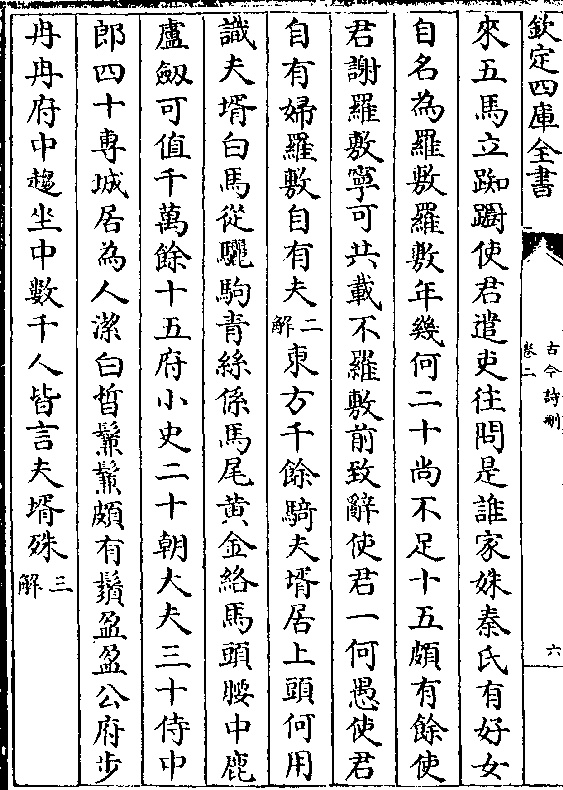 欽定四庫全書
古今詩刪
卷二
六
來五馬立踟躕使君遣吏往問是誰家姝秦氏有好女
自名為羅敷羅敷年幾何二十尚不足十五頗有餘使
君謝羅敷寧可共載不羅敷前致辭使君一何愚使君
自有婦羅敷自有夫二解東方千餘騎夫壻居上頭何用
識夫壻白馬從驪駒青絲係馬尾黃金絡馬頭腰中鹿
盧劔可值千萬餘十五府小史二十朝大夫三十侍中
郎四十專城居為人潔白晳鬑鬑頗有鬚盈盈公府步
冉冉府中趨坐中數千人皆言夫壻殊三解